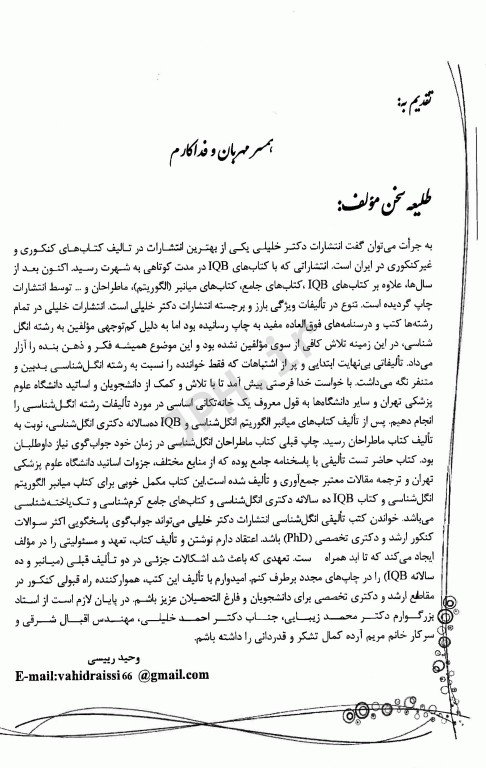 تقدیم به:
همسر مهربان و فداکارم
طلیعه سخن مؤلف:
به جرأت می‌توان گفت انتشارات دکتر خلیلی یکی از بهترین انتشارات در تالیف کتاب‌های کنکوری و
غیرکنکوری در ایران است. انتشاراتی که با کتاب‌های IQB در مدت کوتاهی به شهرت رسید. اکنون بعد از
سال‌ها، علاوه بر کتاب‌های IQB ،کتاب‌های جامع، کتاب‌های میانبر (الگوریتم)، ماطراحان و ... توسط انتشارات
چاپ گردیده است. تنوع در تألیفات ویژگی بارز و برجسته انتشارات دکتر خلیلی است. انتشارات خلیلی در تمام
رشته‌ها کتب و درسنامه‌های فوق‌العاده مفید به چاپ رسانیده بود اما به دلیل کم‌توجهی مؤلفین به رشته انگل
شناسی، در این زمینه تلاش کافی از سوی مؤلفین نشده بود و این موضوع همیشه فکر و ذهن بنده را آزار
می‌داد. تألیفاتی بی‌نهایت ابتدایی و پر از اشتباهات که فقط خواننده را نسبت به رشته انگل‌شناسی بدبین و
متنفر نگه می‌داشت. با خواست خدا فرصتی پیش آمد تا با تلاش و کمک از دانشجویان و اساتید دانشگاه علوم
پزشکی تهران و سایر دانشگاه‌ها به قول معروف یک خانه‌تکانی اساسی در مورد تألیفات رشته انگل‌شناسی را
انجام دهیم. پس از تألیف کتاب‌های میانبر الگوریتم انگل‌شناسی و IQB ده‌سالانه انگل‌شناسی، نوبت به
تألیف کتاب ماطراحان رسید. چاپ قبلی کتاب ماطراحان انگل‌شناسی در زمان خود جواب‌گوی نیاز داوطلبان
بود. کتاب حاضر تست تألیفی با پاسخنامه جامع بوده که از منابع مختلف، جزوات اساتید دانشگاه علوم پزشکی
تهران و ترجمه مقالات معتبر جمع‌آوری و تألیف شده است.این کتاب مکمل خوبی برای کتاب میانبر الگوریتم
انگل‌شناسی و کتاب IQB ده سالانه دکتری انگل‌شناسی و کتاب‌های جامع کرم‌شناسی و تک‌یاخته‌شناسی
می‌باشد. خواندن کتب تألیفی انگل‌شناسی انتشارات دکتر خلیلی می‌تواند جواب‌گوی پاسخگویی اکثر سوالات
کنکور ارشد و دکتری تخصصی (PhD) باشد. اعتقاد دارم نوشتن و تألیف کتاب، تعهد و مسئولیتی را در مؤلف
ایجاد می‌کند که تا ابد همراه ست. تعهدی که باعث شد اشکالات جزئی در دو تألیف قبلی (میانبر و ده
سالانه IQB) را در چاپ‌های مجدد برطرف کنم. امیدوارم با تألیف این کتب، هموارکننده راه قبولی کنکور در
مقاطع ارشد و دکتری تخصصی برای دانشجویان و فارغ التحصیلان عزیز باشم. در پایان لازم است از استاد
بزرگوارم دکتر محمد زیبایی، جناب دکتر احمد خلیلی، مهندس اقبال شرقی و
سرکار خانم مریم آرده کمال تشکر و قدردانی را داشته باشم.
وحید رییسی
E-mail:vahidraissi66 @gmail.com